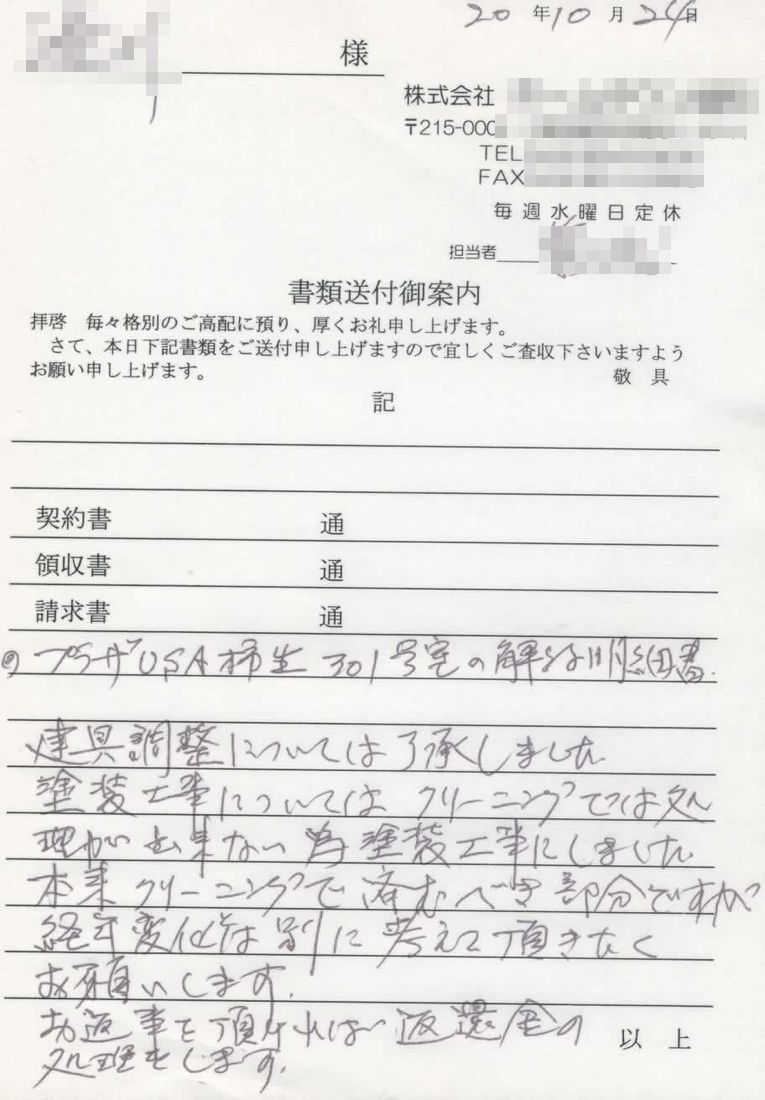 20年10月24日
様
株式会社
〒215-000
TEL
FAX
毎週水曜日定休
担当者
書類送付御案内
拝啓 毎々格別のご高配に預り、厚くお礼申し上げます。
さて、本日下記書類をご送付申し上げますので宜しくご査収下さいますよう
お願い申し上げます。
敬具
記
契約書 通
領収書 通
請求書 通
プラザUSA柿生 301号室の解約明細書.
建具調整については了承しました
塗装工事については クリーニングでは処
理が出来ない為塗装工事にしました
本来クリーニングで済むべき部分ですが
経年変化とは別に考えて頂きたく
お願いします.
お返事を頂ければ返還金の
処理をします.
以上